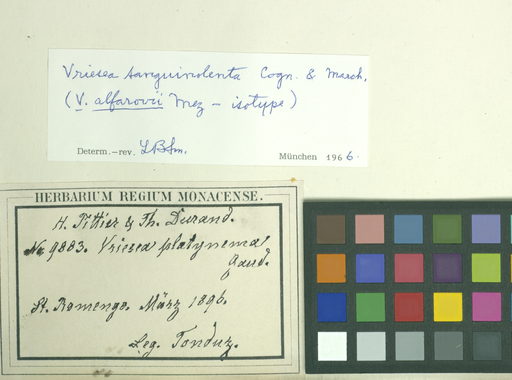 Vriesea sanguinolenta Cogn. & March.
(V. alfarovii Mez – isotype)
Determ.–rev. LBSm. München 1966.
HERBARIUM REGIUM MONACENSE.
H. Pittier & Th. Durand.
No 9883. Vriesea platynema
Gaud.
St. Domengo. März 1896.
Leg. Tonduz.